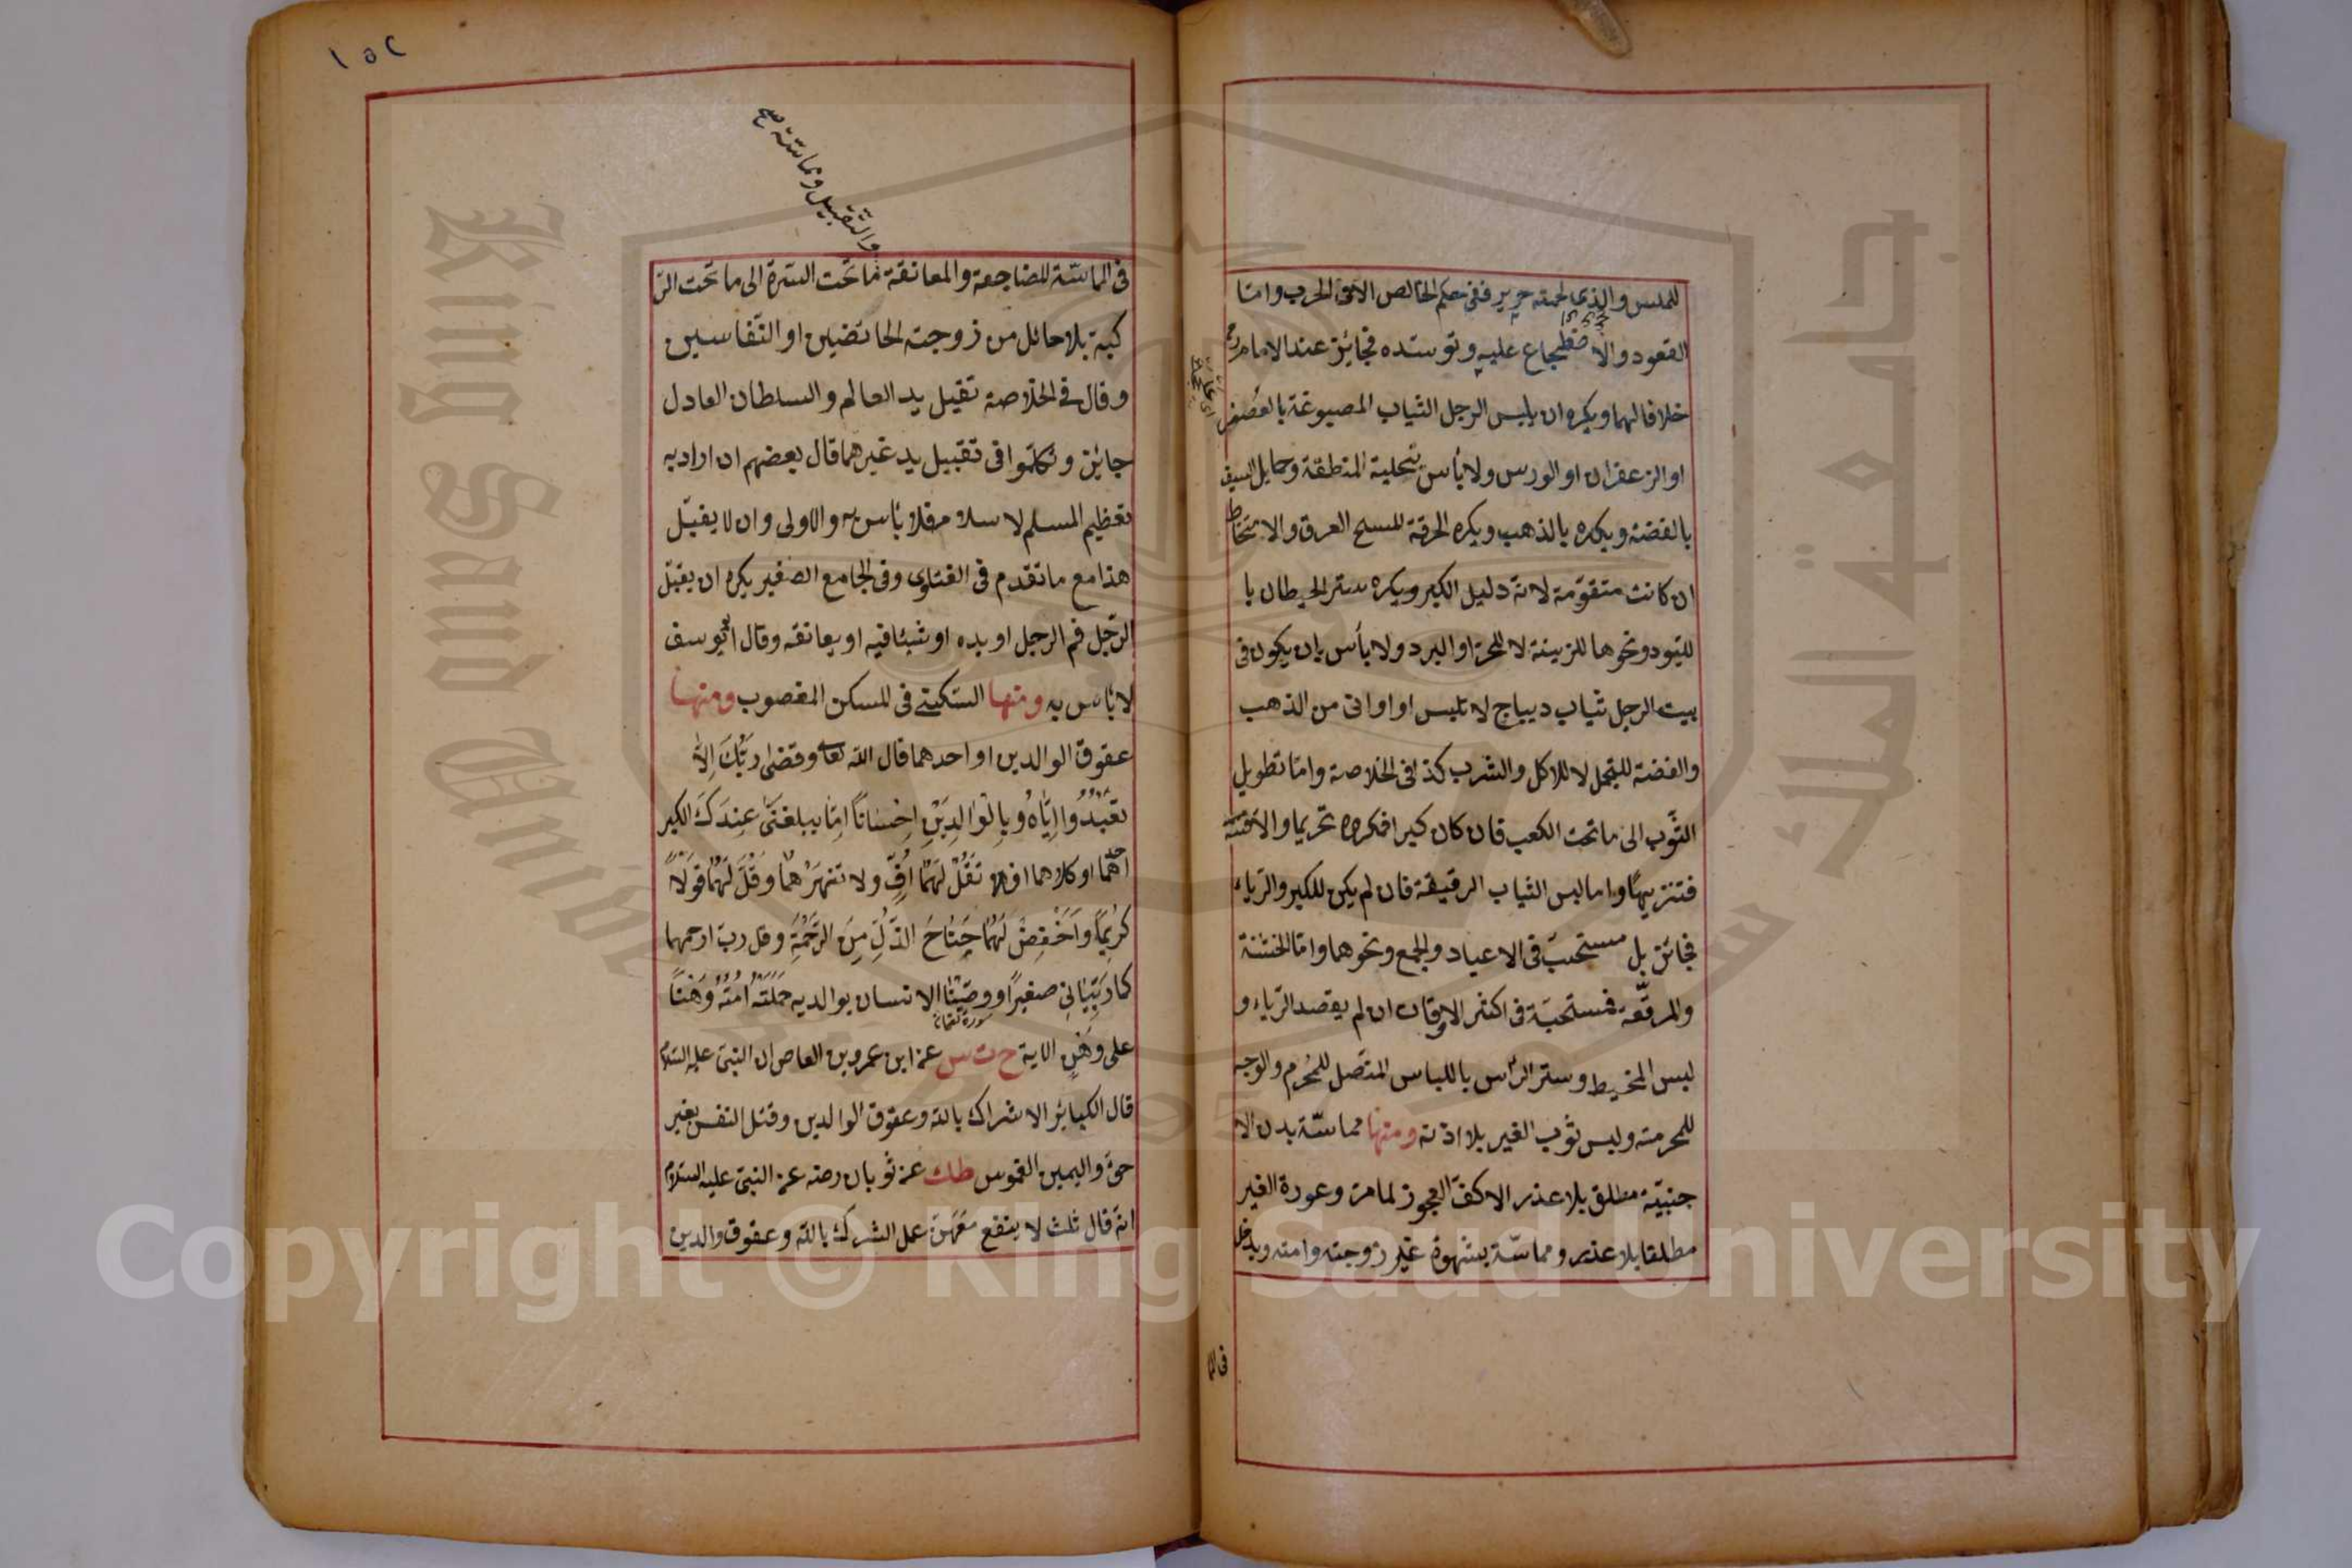 للملبس والذى لحمته حرير ففى حكم الخالص الا فى الحرب واما
القعود والاضطجاع عليه وتوسّده فجائز عند الامام رح
خلافا لهما ويكره ان يلبس الرجل الثياب المصبوغة بالعصفر
او الزعفران او الورس ولا بأس بتحلية المنطقة وحمايل السيف
بالفضة ويكره بالذهب ويكره الخرقة لمسح العرق والامتخاط
ان كانت متقوّمة لانه دليل الكبر ويكره ستر الحيطان با
للبود ونحوها للزينة لا للحر او البرد ولا بأس بان يكون فى
بيت الرجل ثياب ديباج لا تلبس او اوانى من الذهب
والفضة للتجمل لا للاكل والشرب كذا فى الخلاصة وامّا تطويل
الثّوب الى ما تحت الكعب فان كان كبرا فمكروه تحريما والا
فتنزيهًا واما لبس الثياب الرقيقة فان لم يكن للكبر والرّياء
فجائز بل مستحبّ فى الاعياد والجمع ونحوهما وامّا الخشنة
والمرقّعة فمستحبّة فى اكثر الاوقات ان لم يقصد الرّياء و
لبس المخيط وستر الرّأس باللباس المتّصل للمُحرِم والوجه
للمحرمة ولبس ثوب الغير بلا اذنه ومنها مماسّة بدن الا
جنبيّة مطلق بلا عذر الا كفّ العجوز لما مرّ وعورة الغير
مطلقا بلا عذر ومماسّة بشهوة غير زوجته وامته ويدخل
فى الما
١٥٢
والتّقبيل ومماسّة صح
فى المماسّة المضاجعة والمعانقة ما تحت السّرة الى ما تحت الرّ
كبة بلا حائل من زوجته الحائضين او النّفاسين
وقال فى الخلاصة تقبيل يد العالم والسلطان العادل
جائز وتكلّموا فى تقبيل يد غيرهما قال بعضهم ان اراد به
تعظيم المسلم لاسلامه فلا بأس به والاولى وان لا يقبّل
هذا مع ما تقدم فى الفتاوى وفى الجامع الصغير يكره ان يقبّل
الرّجل فم الرجل او يده او شيئا فيه او يعانقه وقال ابو يوسف
لا بأس به ومنها السّكنى فى المسكن المغصوب ومنها
عقوق الوالدين او احدهما قال الله تعا وقضى ربّك الا
تعبُدُوا اِلّا اِيّاهُ وَبِالْوَالِدَيْنِ اِحْسَانًا اِمّا يبلغنّ عِندَكَ الكبر
احدهما او كلاهما فلا تَقُلْ لَهُمَا اُفٍّ ولا تنهَرْهُمَا وَقُلْ لَهُمَا قَوْلًا
كَرِيمًا وَاخْفِضْ لَهُمَا جَنَاحَ الذُّلِّ مِنَ الرَّحْمَةِ وقل ربّ ارحمهما
كما رَبَّيَانِى صغيرًا ووصّينا الانسان بوالديه حَمَلَتْهُ اُمُّهُ وَهْنًا
سورة لقمان
على وَهْنٍ الاية خ ت س عن ابن عمرو بن العاص ان النبى عليه السّلام
قال الكبائر الاشراك بالله وعقوق الوالدين وقتل النفس بغير
حقّ واليمين الغموس طك عن ثوبان رضه عن النبىّ عليه السّلام
انّه قال ثلث لا ينفع مَعَهُنّ عمل الشرك بالله وعقوق والدين
King Saud Unive
جامعة الملك س
Copyright © King Saud University